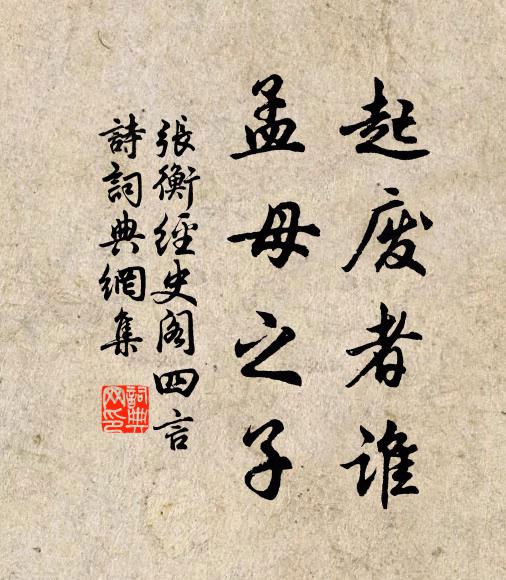 起废者谁
孟母之子
張衡經史阁四言
詩詞典網集
詞典
网印